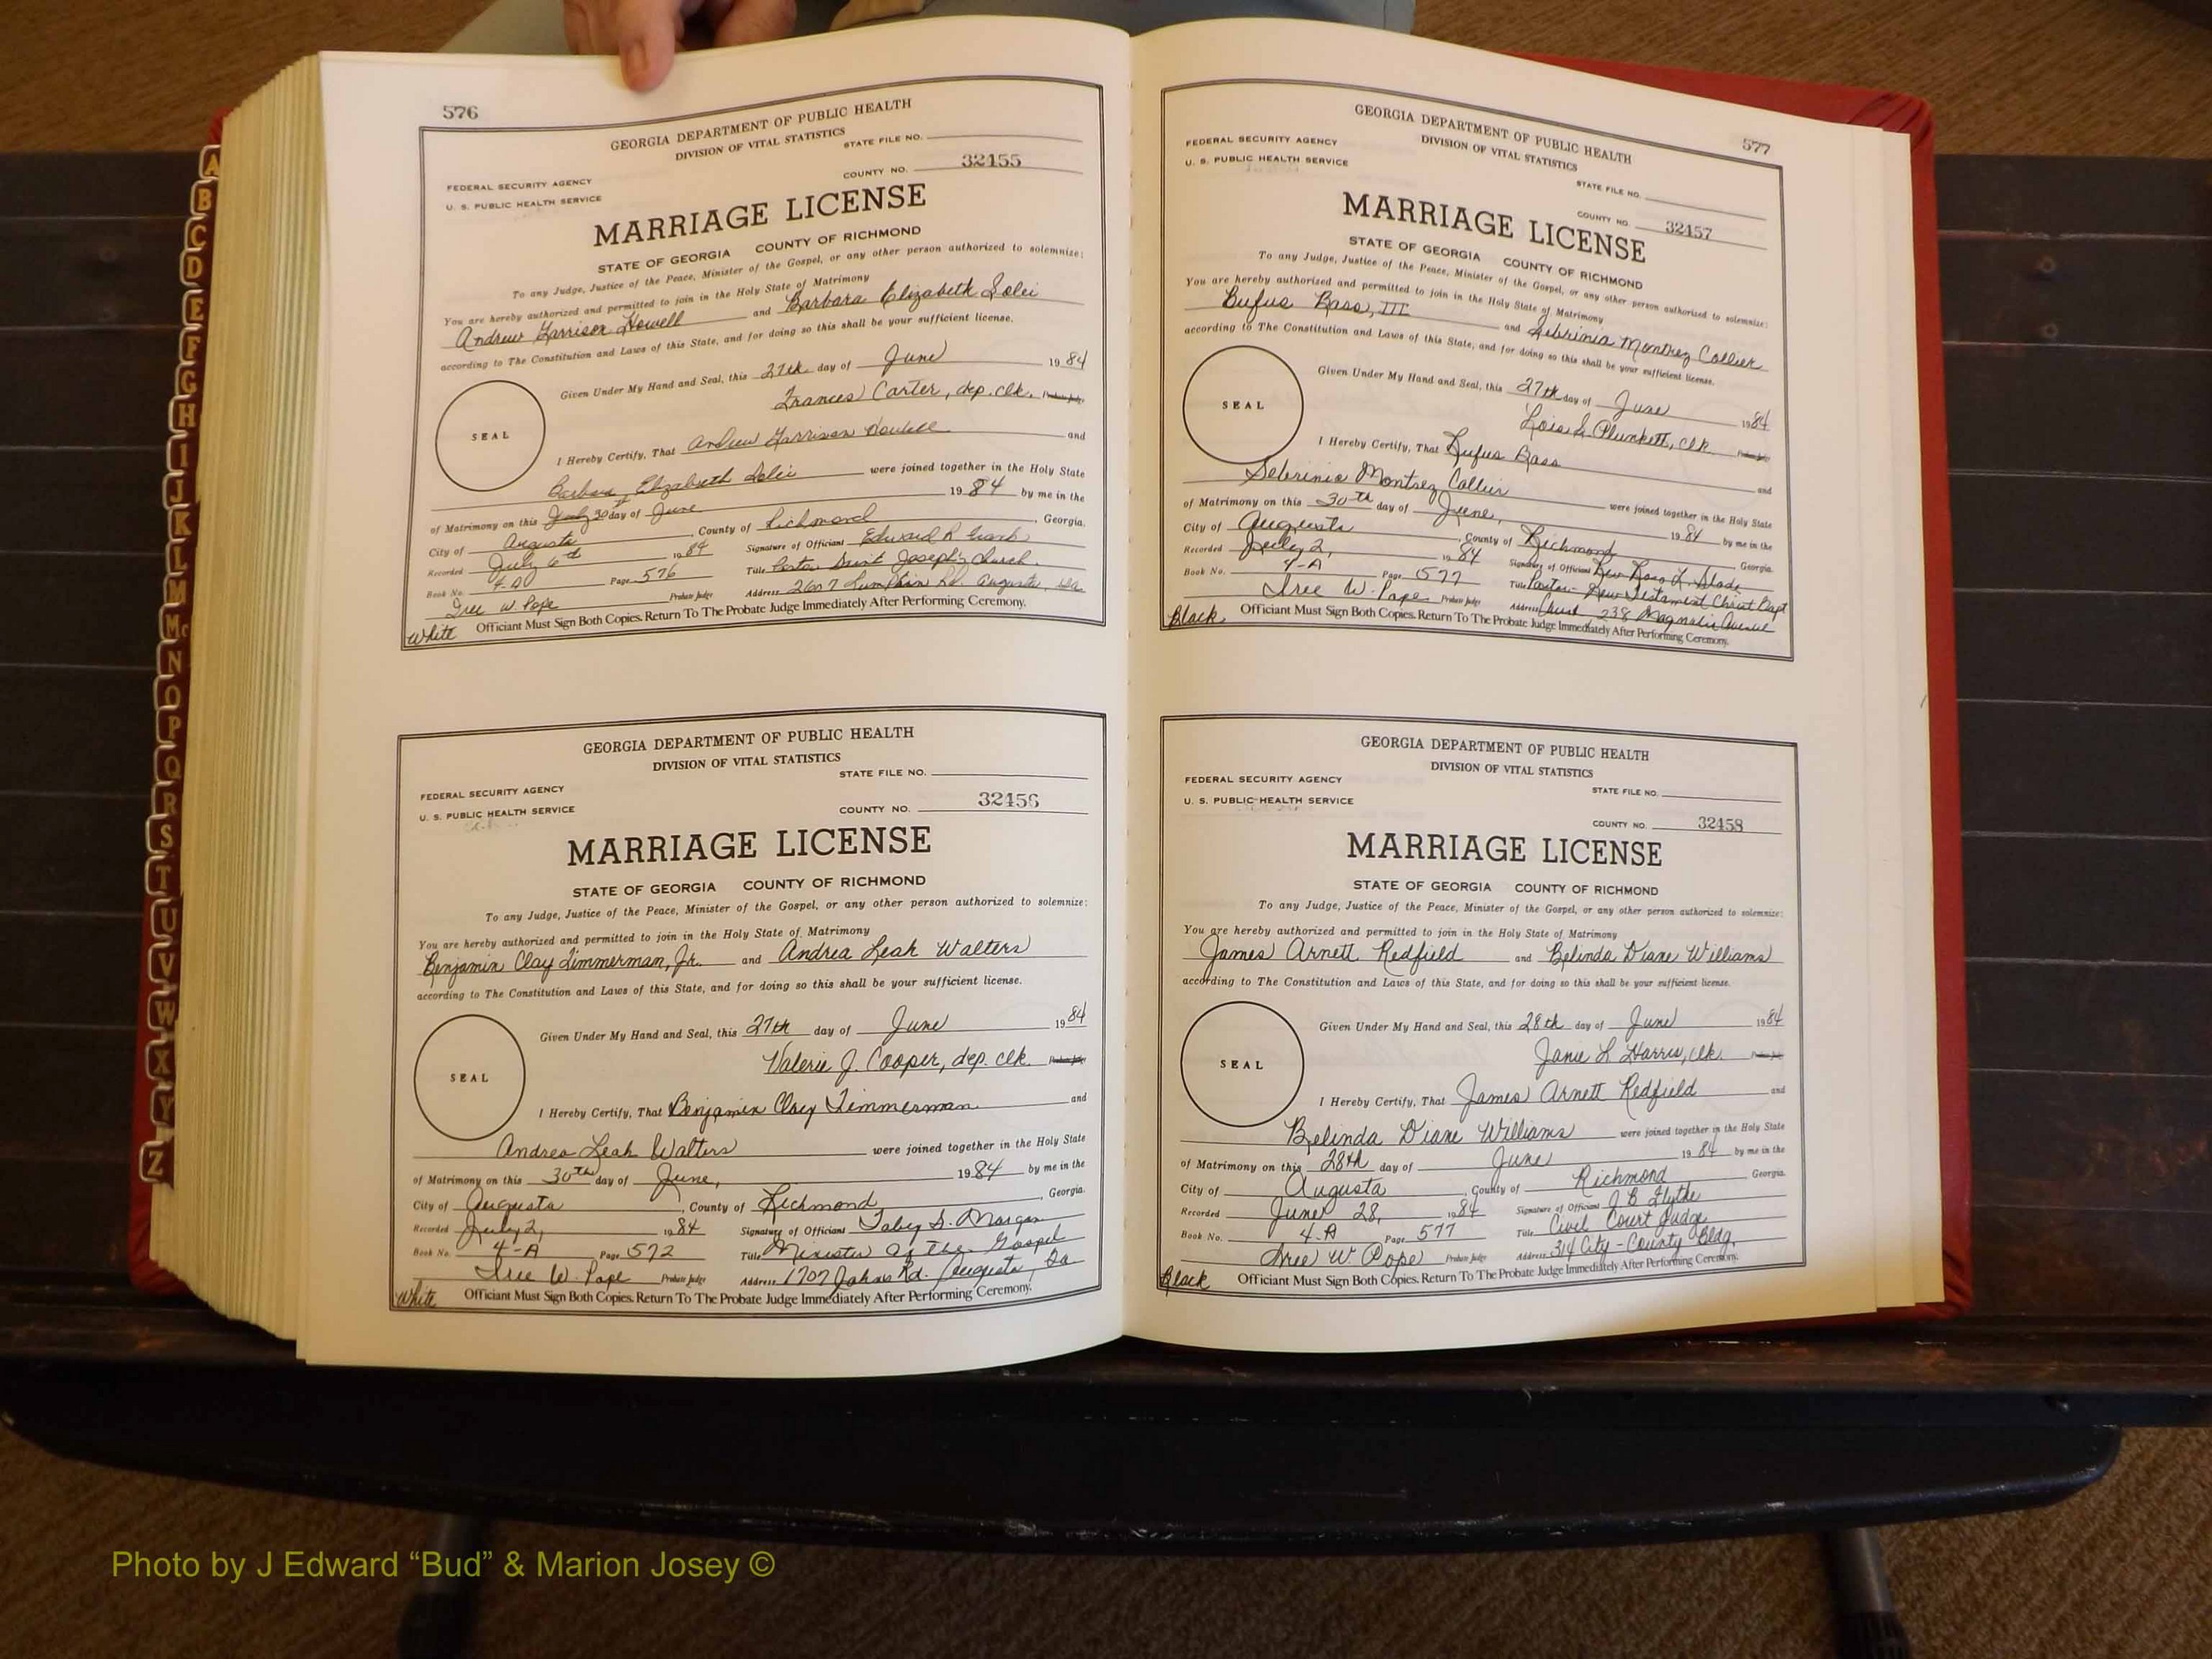 576
GEORGIA DEPARTMENT OF PUBLIC HEALTH
DIVISION OF VITAL STATISTICS
STATE FILE NO.
COUNTY NO. 32455
FEDERAL SECURITY AGENCY
U. S. PUBLIC HEALTH SERVICE
MARRIAGE LICENSE
STATE OF GEORGIA COUNTY OF RICHMOND
To any Judge, Justice of the Peace, Minister of the Gospel, or any other person authorized to solemnize:
You are hereby authorized and permitted to join in the Holy State of Matrimony
Andrew Harrison Howell and Barbara Elizabeth
according to The Constitution and Laws of this State, and for doing so this shall be your sufficient license.
Given Under My Hand and Seal, this 27th day of June 1984
Frances Carter, dep. clk. Probate Judge
SEAL
I Hereby Certify, That Andrew Harrison Howell and
Barbara Elizabeth were joined together in the Holy State
of Matrimony on this July 30 day of June 1984 by me in the
City of Augusta, County of Richmond, Georgia.
Recorded July 6th 1984 Signature of Official Edward R
Book No. 4-A Page 576 Title Pastor Saint Joseph's Church
Iree W. Pope Probate Judge Address 2607 Lumpkin Rd. Augusta, Ga.
White Officiant Must Sign Both Copies. Return To The Probate Judge Immediately After Performing Ceremony.
GEORGIA DEPARTMENT OF PUBLIC HEALTH
DIVISION OF VITAL STATISTICS
STATE FILE NO.
FEDERAL SECURITY AGENCY
U. S. PUBLIC HEALTH SERVICE
COUNTY NO. 32456
MARRIAGE LICENSE
STATE OF GEORGIA COUNTY OF RICHMOND
To any Judge, Justice of the Peace, Minister of the Gospel, or any other person authorized to solemnize:
You are hereby authorized and permitted to join in the Holy State of Matrimony
Benjamin Clay Timmerman, Jr. and Andrea Leah Walters
according to The Constitution and Laws of this State, and for doing so this shall be your sufficient license.
Given Under My Hand and Seal, this 27th day of June 1984
Valerie J. Cooper, dep. clk. Probate Judge
SEAL
I Hereby Certify, That Benjamin Clay Timmerman and
Andrea Leah Walters were joined together in the Holy State
of Matrimony on this 30th day of June, 1984 by me in the
City of Augusta, County of Richmond, Georgia.
Recorded July 2, 1984 Signature of Official S. Morgan
Book No. 4-A Page 572 Title Minister Of The Gospel
Iree W. Pope Probate Judge Address 1707 Johns Rd. Augusta, Ga
White Officiant Must Sign Both Copies. Return To The Probate Judge Immediately After Performing Ceremony.
577
GEORGIA DEPARTMENT OF PUBLIC HEALTH
DIVISION OF VITAL STATISTICS
FEDERAL SECURITY AGENCY
U. S. PUBLIC HEALTH SERVICE
STATE FILE NO.
COUNTY NO. 32457
MARRIAGE LICENSE
STATE OF GEORGIA COUNTY OF RICHMOND
To any Judge, Justice of the Peace, Minister of the Gospel, or any other person authorized to solemnize:
You are hereby authorized and permitted to join in the Holy State of Matrimony
Rufus Bass, III and Sebrinia Montrez Collier
according to The Constitution and Laws of this State, and for doing so this shall be your sufficient license.
Given Under My Hand and Seal, this 27th day of June 1984
Lois S. Plunkett, clk. Probate Judge
SEAL
I Hereby Certify, That Rufus Bass and
Sebrinia Montrez Collier were joined together in the Holy State
of Matrimony on this 30th day of June, 1984 by me in the
City of Augusta, County of Richmond Georgia.
Recorded July 2, 1984 Signature of Official Rev
Book No. 4-A Page 577 Title Pastor- New Testament Christ Bapt
Iree W. Pope Probate Judge Address 238 Magnolia Avenue
Black Officiant Must Sign Both Copies. Return To The Probate Judge Immediately After Performing Ceremony.
GEORGIA DEPARTMENT OF PUBLIC HEALTH
DIVISION OF VITAL STATISTICS
FEDERAL SECURITY AGENCY
U. S. PUBLIC HEALTH SERVICE
STATE FILE NO.
COUNTY NO. 32458
MARRIAGE LICENSE
STATE OF GEORGIA COUNTY OF RICHMOND
To any Judge, Justice of the Peace, Minister of the Gospel, or any other person authorized to solemnize:
You are hereby authorized and permitted to join in the Holy State of Matrimony
James Arnett Redfield and Belinda Diane Williams
according to The Constitution and Laws of this State, and for doing so this shall be your sufficient license.
Given Under My Hand and Seal, this 28th day of June 1984
Janie L Harris, clk. Probate Judge
SEAL
I Hereby Certify, That James Arnett Redfield and
Belinda Diane Williams were joined together in the Holy State
of Matrimony on this 28th day of June 1984 by me in the
City of Augusta, County of Richmond Georgia.
Recorded June 28, 1984 Signature of Official J B Flythe
Book No. 4-A Page 577 Title Civil Court Judge
Iree W. Pope Probate Judge Address 314 City-County Bldg.
Black Officiant Must Sign Both Copies. Return To The Probate Judge Immediately After Performing Ceremony.
A
B
C
D
E
F
G
H
I
J
K
L
M
Mc
N
O
P
Q
R
S
T
U
V
W
X
Y
Z
Photo by J Edward “Bud” & Marion Josey ©